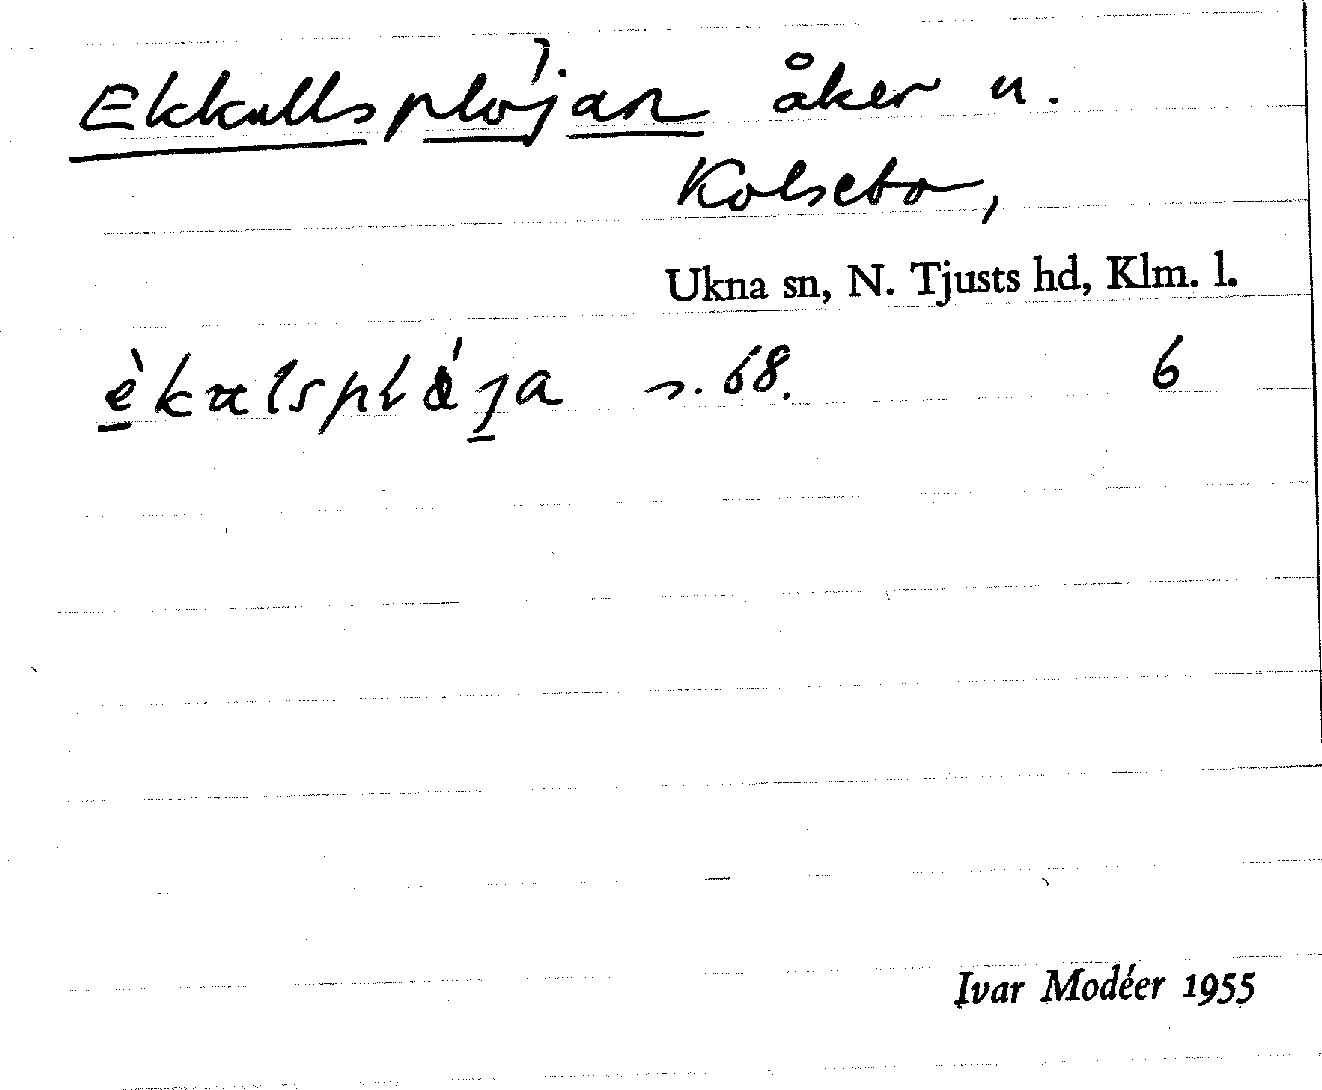 Ekkullsplöjan åker n.
Kolsebo,
Ukna sn, N. Tjusts hd, Klm. l.
s. 68. 6
Ivar Modéer 1955